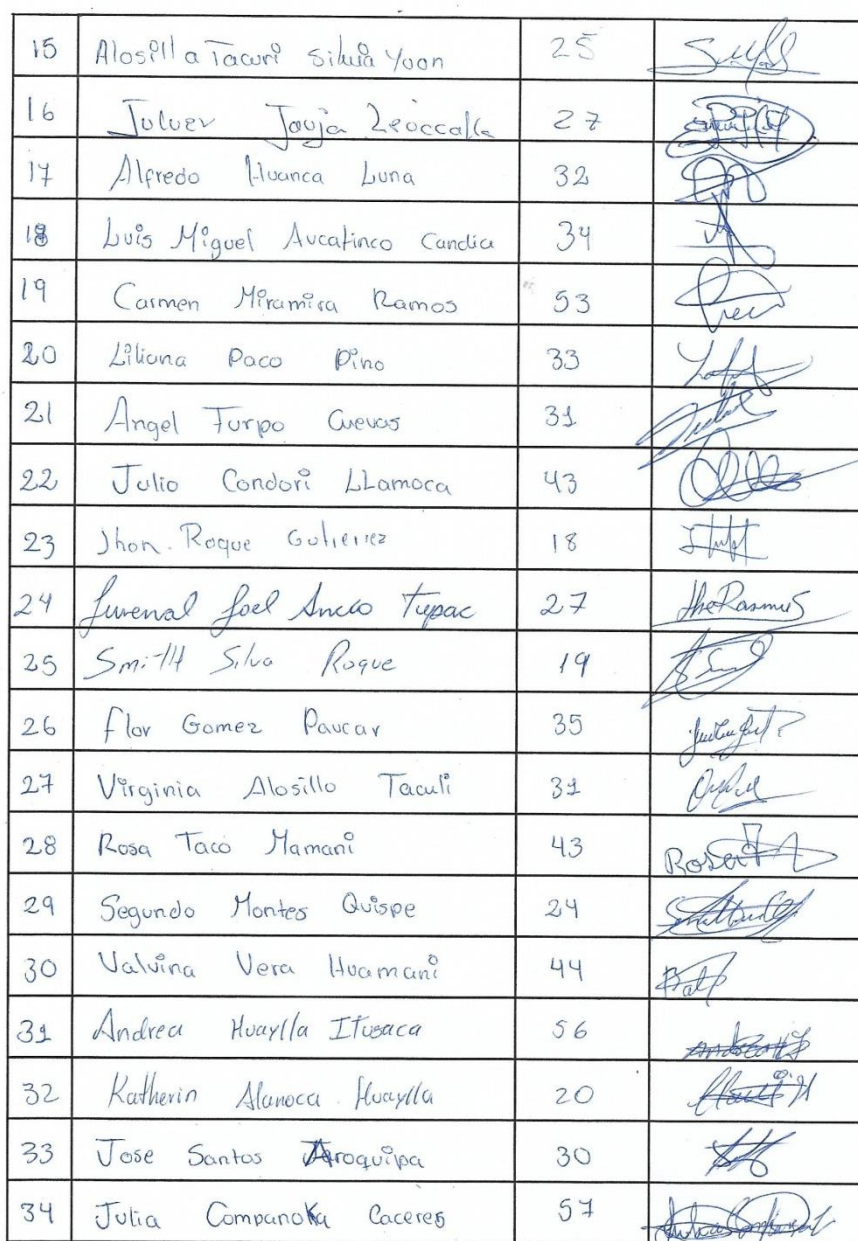 15 Alosilla Tacuri Silvia Yoon 25
16 Juluer Jauja Leoccalla 27
17 Alfredo Huanca Luna 32
18 Luis Miguel Aucatinco Candia 34
19 Carmen Miramira Ramos 53
20 Liliana Paco Pino 33
21 Angel Turpo Cuevas 31
22 Julio Condori LLamoca 43
23 Jhon. Roque Gutierrez 18
24 Juvenal Joel Ancco Tupac 27 JheRasmuS
25 Smith Silva Roque 19
26 Flor Gomez Paucar 35
27 Virginia Alosillo Taculi 31
28 Rosa Taco Mamani 43
29 Segundo Montes Quispe 24
30 Valvina Vera Huamani 44
31 Andrea Huaylla Itusaca 56
32 Katherin Alanoca Huaylla 20
33 Jose Santos Aroquipa 30
34 Julia Companoka Caceres 57